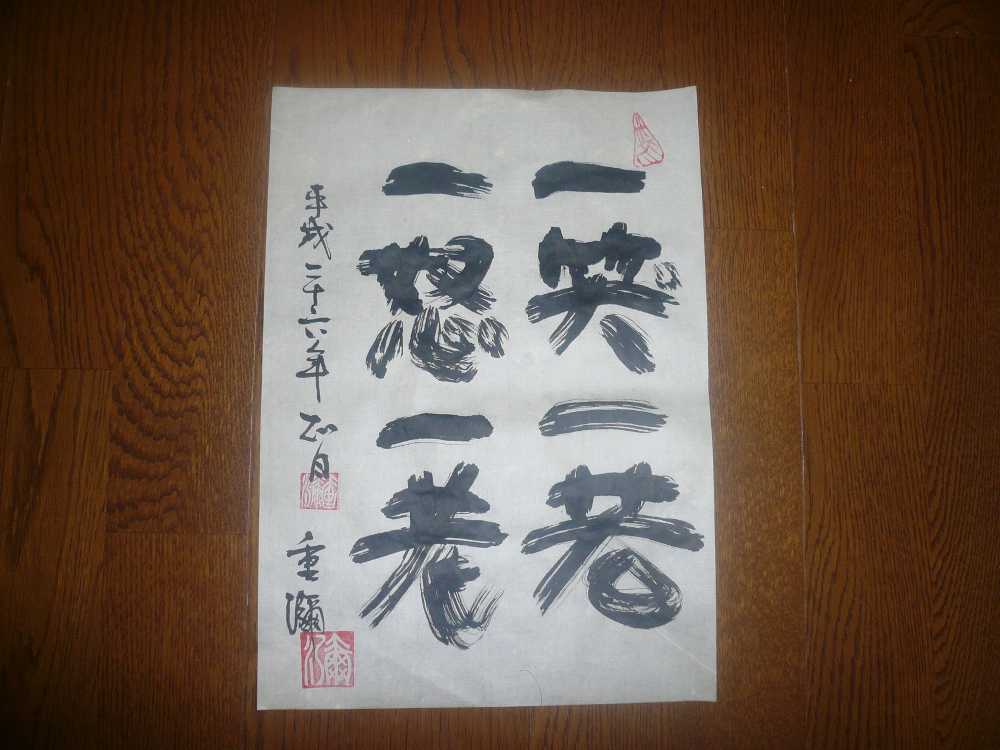 一笑一若
一怒一老
平成二十六年正月
重瀰